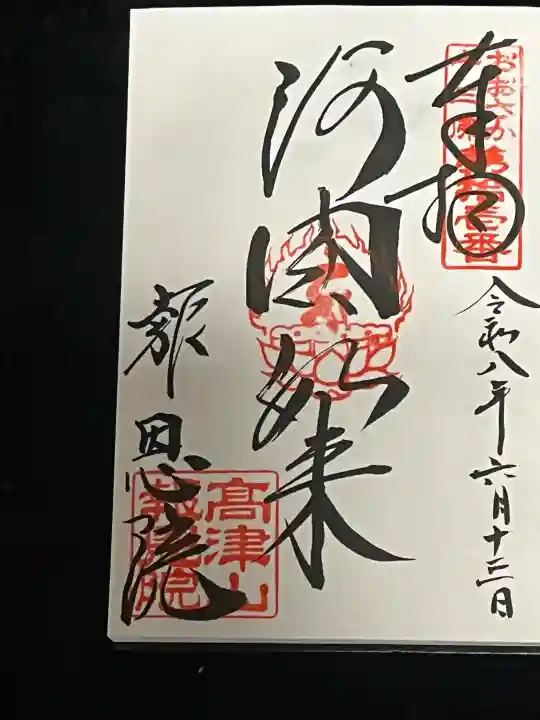 奉拝
おおさか
十三佛
第拾壱番
令和八年六月十三日
阿閦如来
報恩院
高津山
報恩院